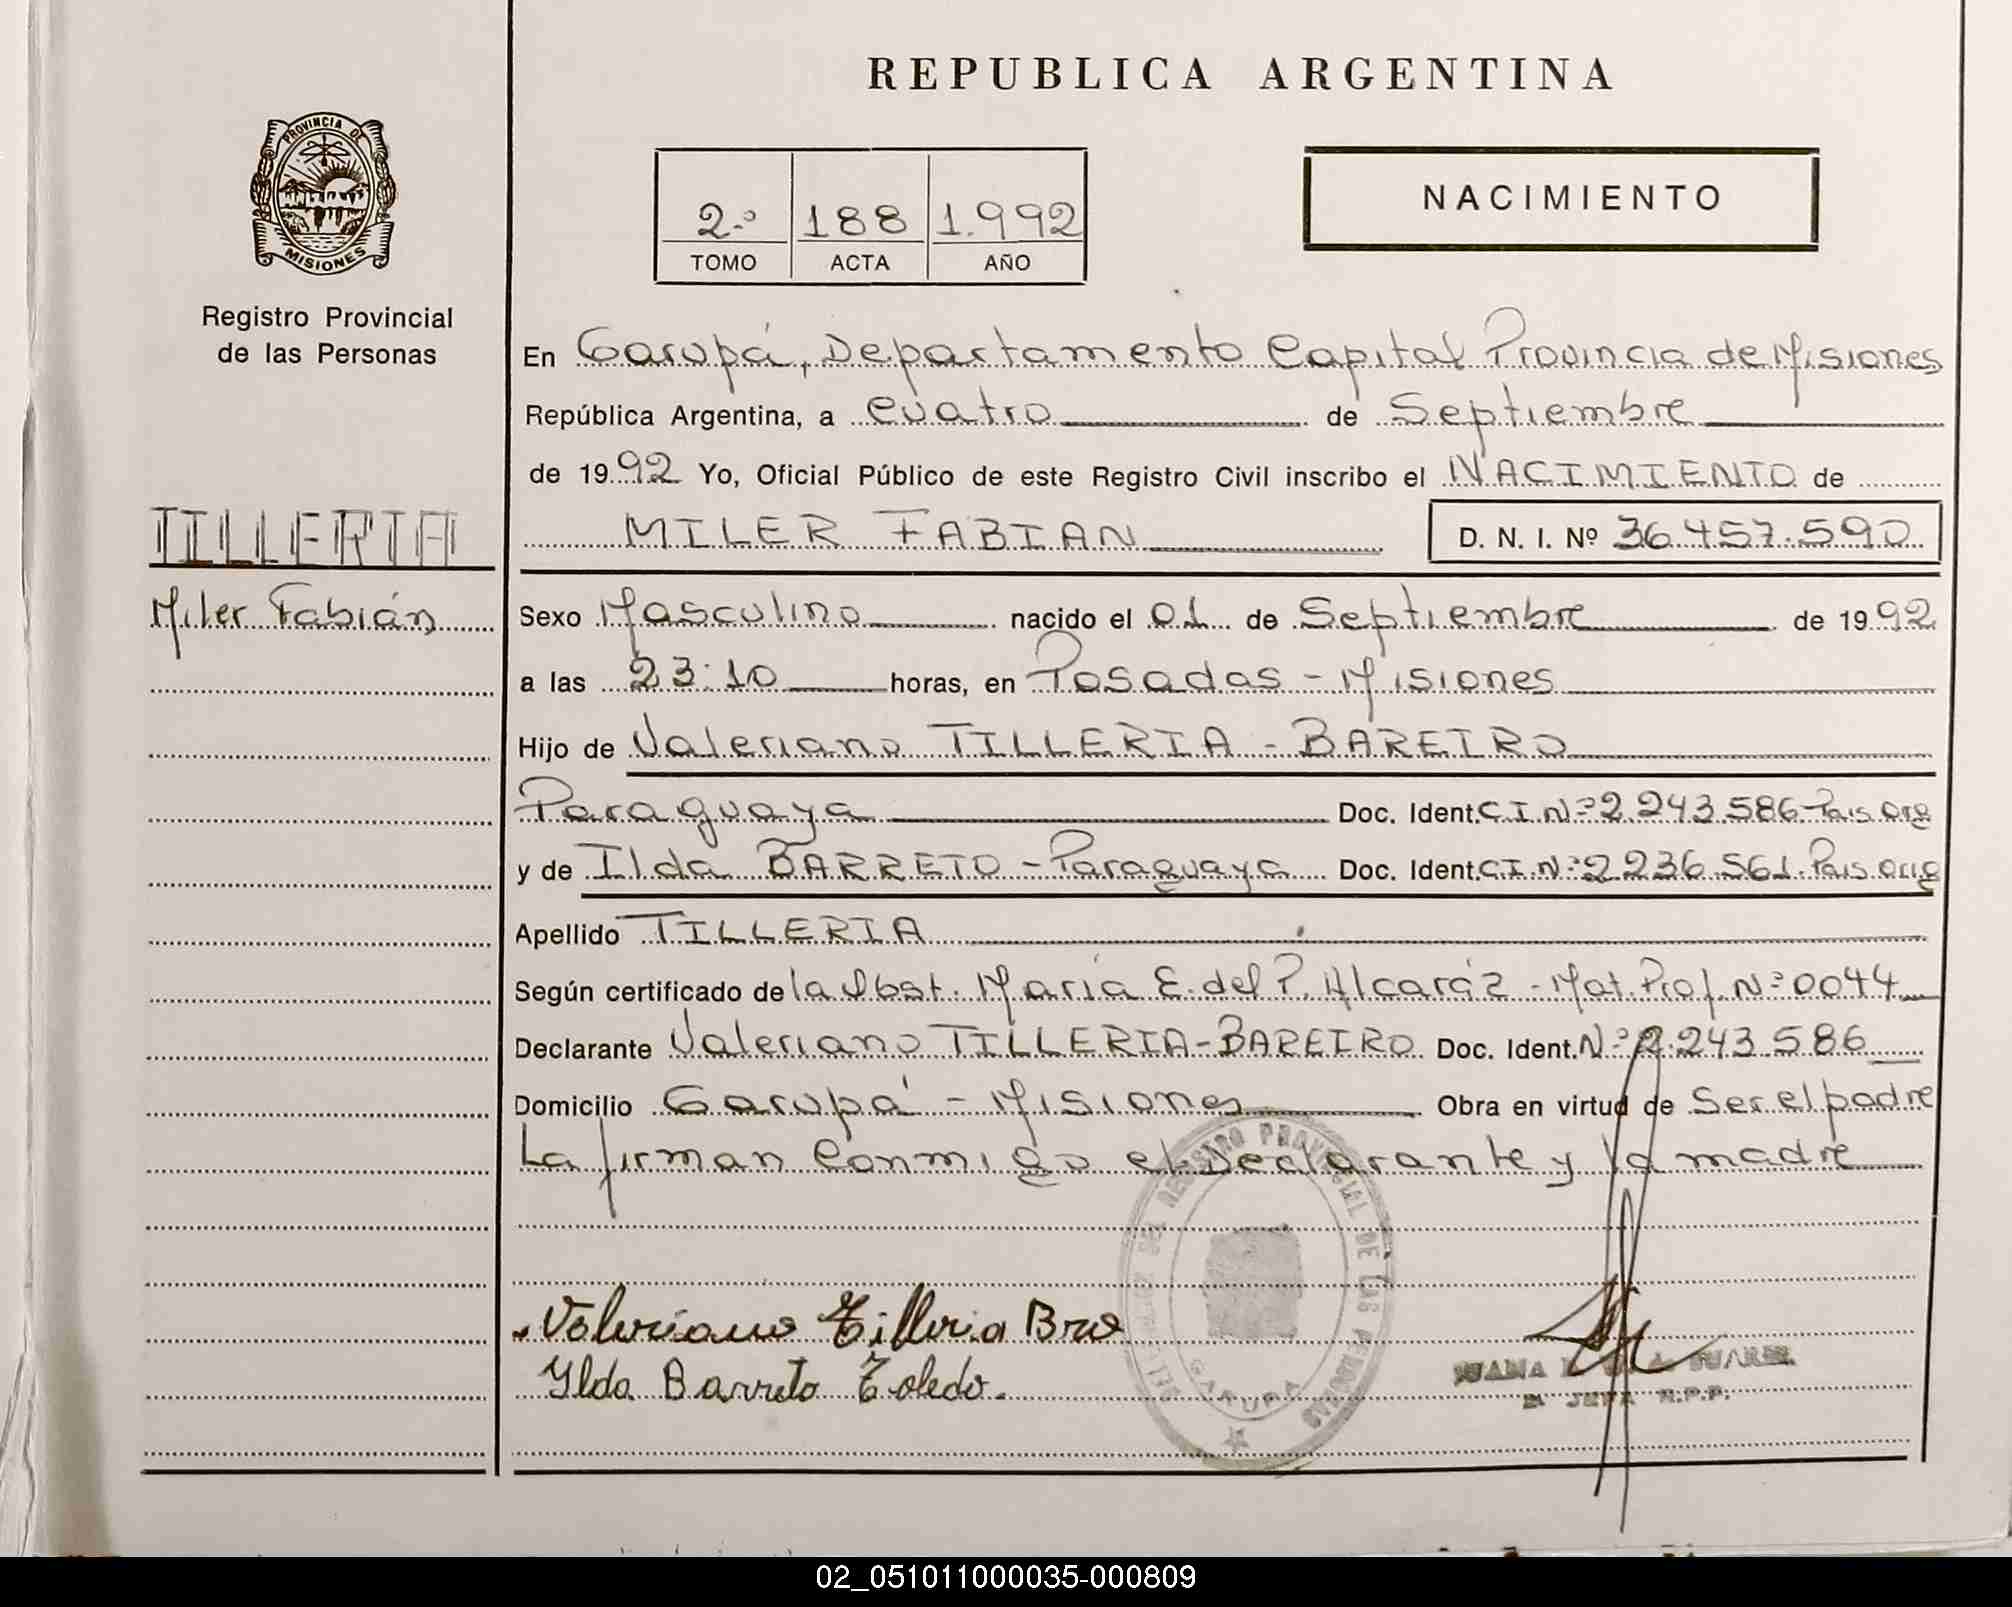 REPUBLICA ARGENTINA
PROVINCIA DE
MISIONES
Registro Provincial
de las Personas
2.º 188 1.992
TOMO ACTA AÑO
NACIMIENTO
TILLERIA
Miler Fabián
En Garupá, Departamento Capital Provincia de Misiones
República Argentina, a Cuatro de Septiembre
de 1992 Yo, Oficial Público de este Registro Civil inscribo el NACIMIENTO de
MILER FABIAN D. N. I. Nº 36.457.590
Sexo Masculino nacido el 01 de Septiembre de 1992
a las 23:10 horas, en Posadas - Misiones
Hijo de Valeriano TILLERIA - BAREIRO
Paraguaya Doc. Ident. C.I. Nº 2.243.586 - Pais Orig
y de Ilda BARRETO - Paraguaya Doc. Ident. C.I. Nº 2.236.561. Pais Orig
Apellido TILLERIA
Según certificado de la Obst. María E. del P. Alcaráz - Mat. Prof. Nº 0044
Declarante Valeriano TILLERIA - BAREIRO Doc. Ident. Nº 2.243.586
Domicilio Garupá - Misiones Obra en virtud de Ser el padre
La firman Conmigo el Declarante y la madre
Valeriano Tilleria Bro
Ylda Barreto Toledo.
DEL REGISTRO PROVINCIAL DE LAS PERSONAS
GARUPA
JUANA SUAREZ
JEFA R.P.P.
02_051011000035-000809